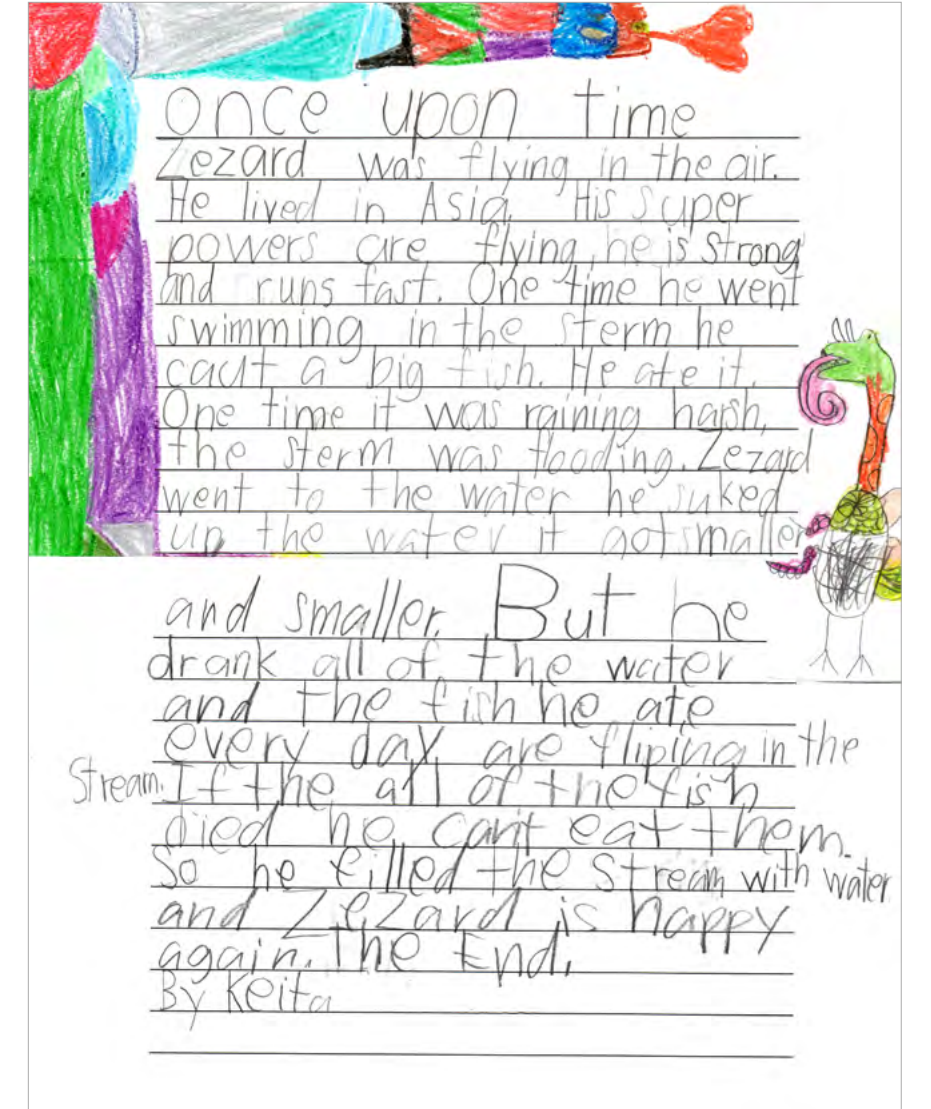 once upon time
Zezard was flying in the air.
He lived in Asia. His super
powers are flying, he is strong
and runs fast. One time he went
swimming in the sterm he
caut a big fish. He ate it.
One time it was raining harsh,
the sterm was flooding. Zezard
went to the water he suked
up the water it got smaller
and smaller. But he
drank all of the water
and the fish he ate
every day, are fliping in the
Stream. If the all of the fish
died he cant eat them.
So he filled the stream with water
and Zezard is happy
again. The End.
By Keita